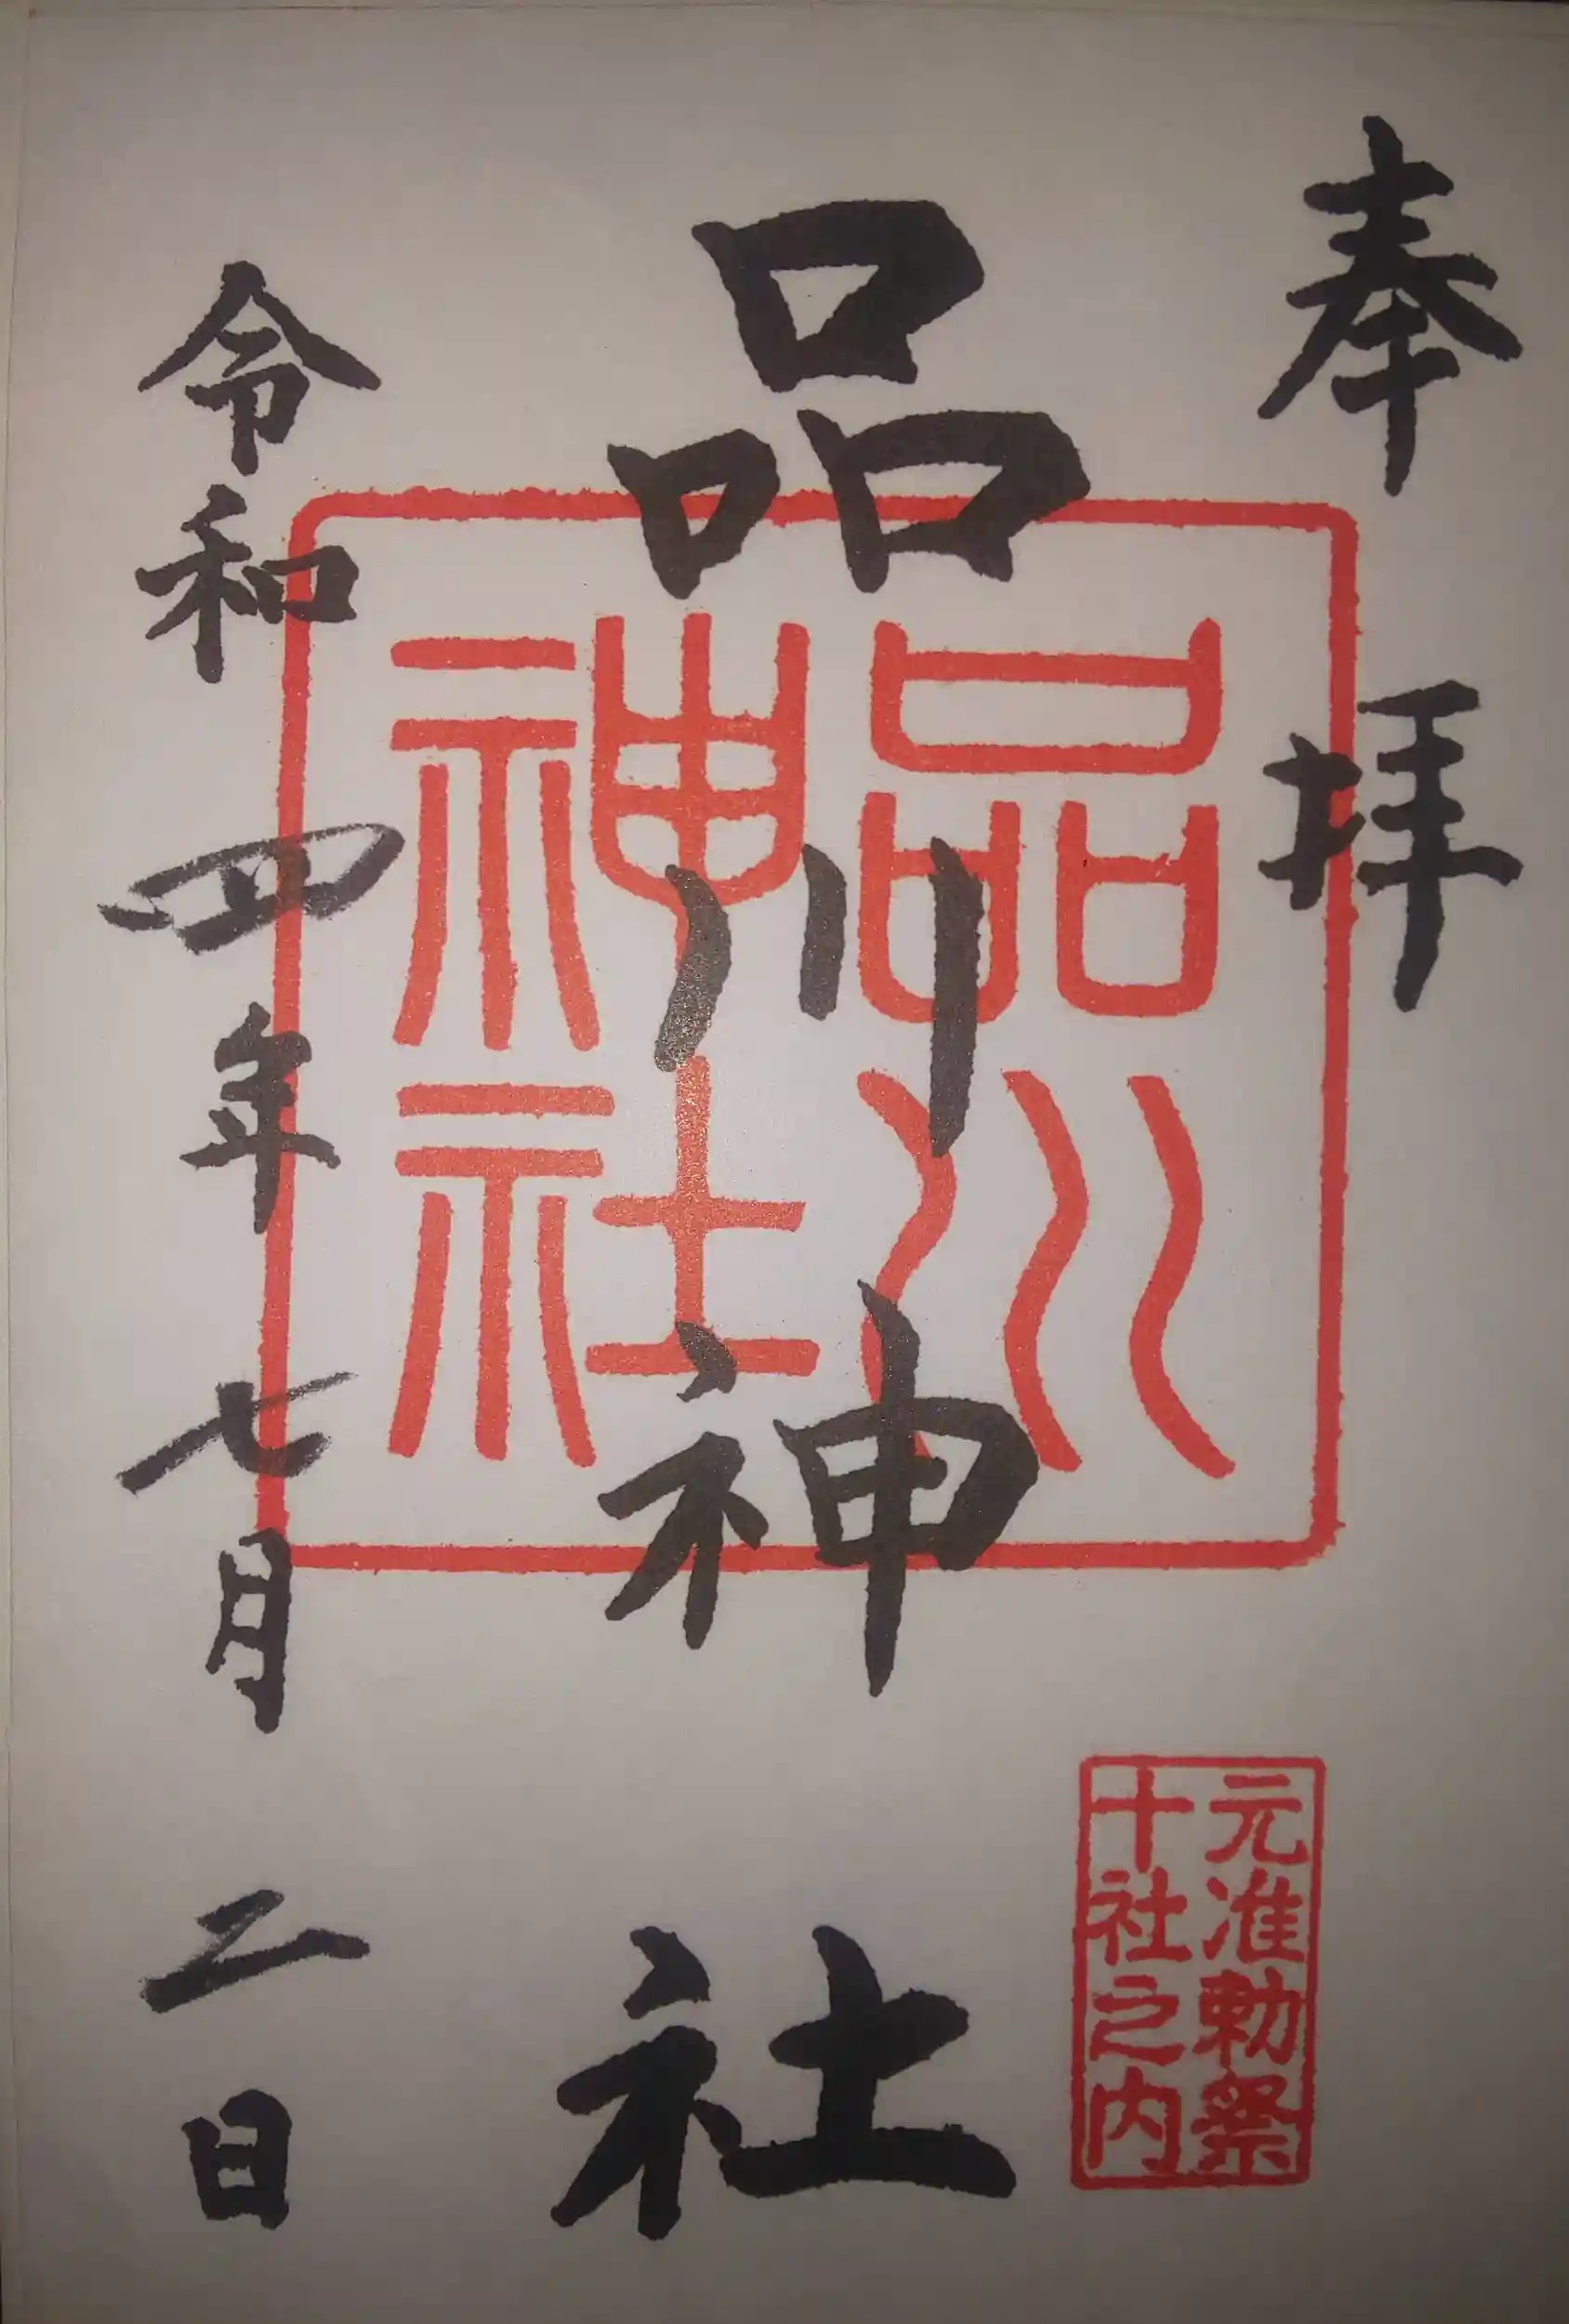 奉拝
品川神社
品川
神社
元准勅祭
十社之内
令和四年七月二日